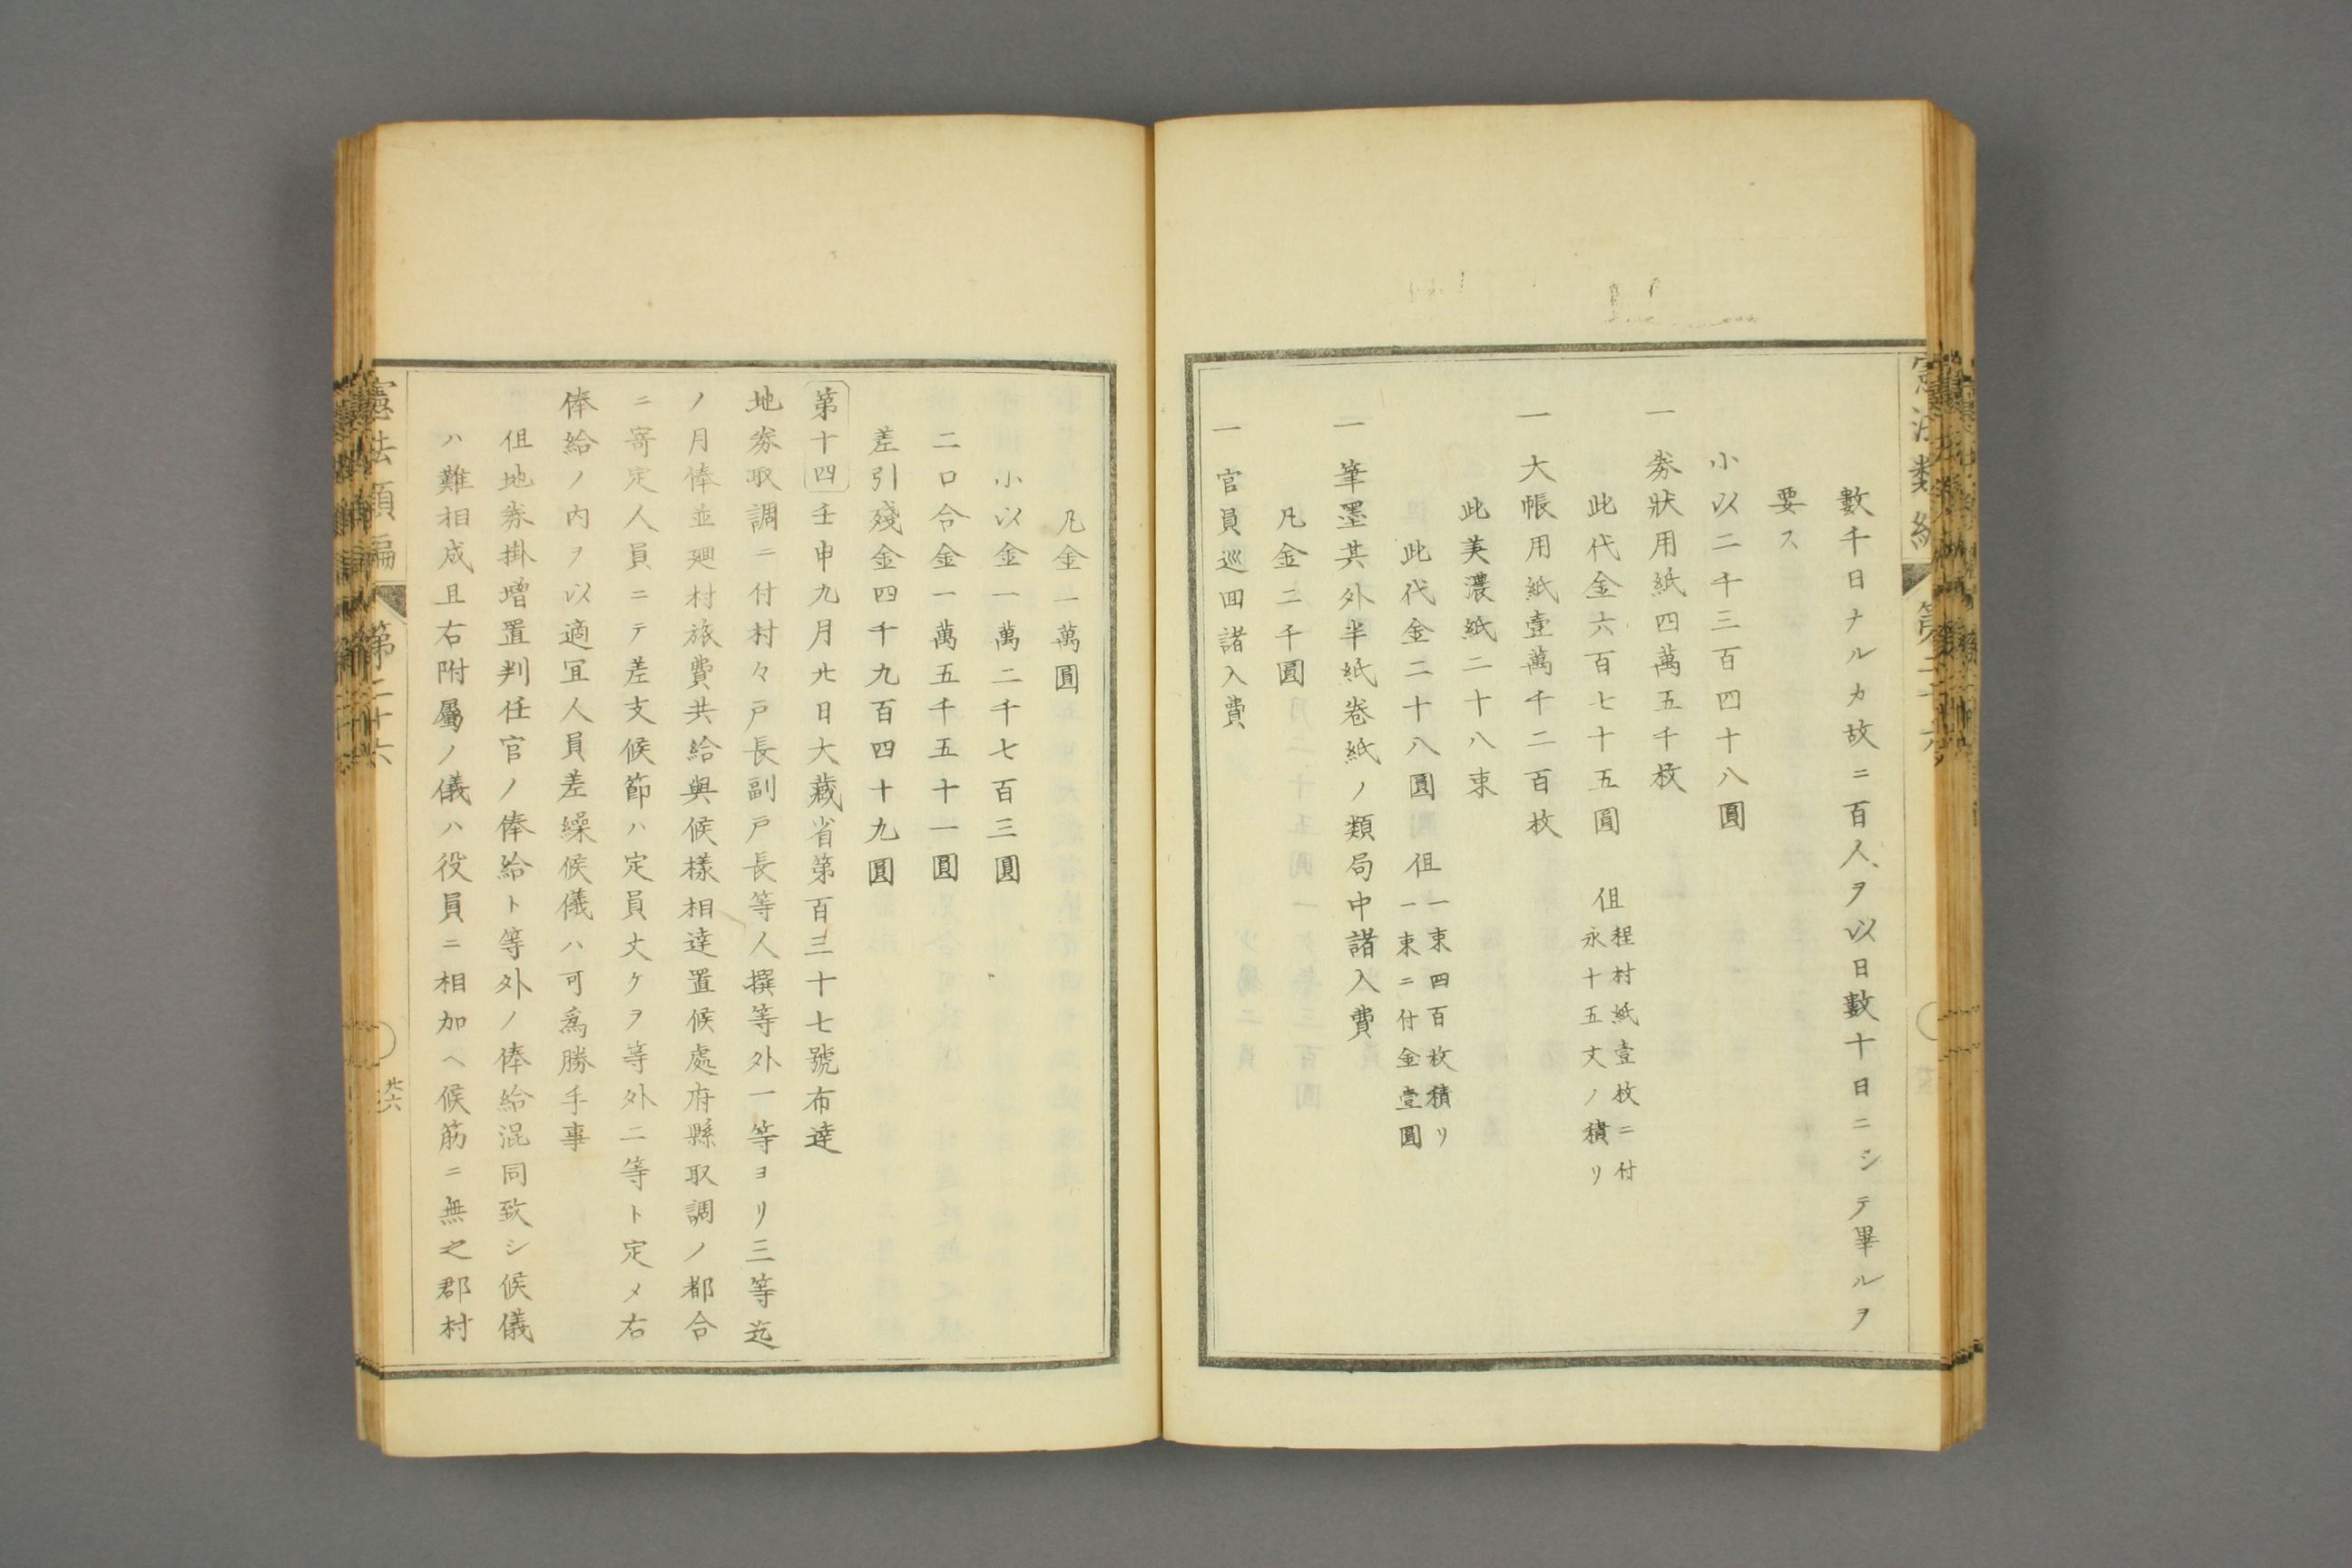 數千日ナルカ故ニ百人ヲ以日數十日ニシテ畢ルヲ
要ス
小以二千三百四十八圓
一 券狀用紙四萬五千枚
此代金六百七十五圓 但程村紙壹枚ニ付
永十五文ノ積リ
一 大帳用紙壹萬千二百枚
此美濃紙二十八束
此代金二十八圓 但一束四百枚積リ
一束ニ付金壹圓
一 筆墨其外半紙卷紙ノ類局中諸入費
凡金二千圓
一 官員巡回諸入費
凡金一萬圓
小以金一萬二千七百三圓
二口合金一萬五千五十一圓
差引殘金四千九百四十九圓
第十四壬申九月廿日大藏省第百三十七號布達
地券取調ニ付村々戸長副戸長等人撰等外一等ヨリ三等迄
ノ月俸並廻村旅費共給與候樣相達置候處府縣取調ノ都合
ニ寄定人員ニテ差支候節ハ定員丈ケヲ等外二等ト定メ右
俸給ノ内ヲ以適冝人員差繰候儀ハ可爲勝手事
但地券掛增置判任官ノ俸給ト等外ノ俸給混同致シ候儀
ハ難相成且右附屬ノ儀ハ役員ニ相加ヘ候筋ニ無之郡村
憲法類編 第二十六
廿六